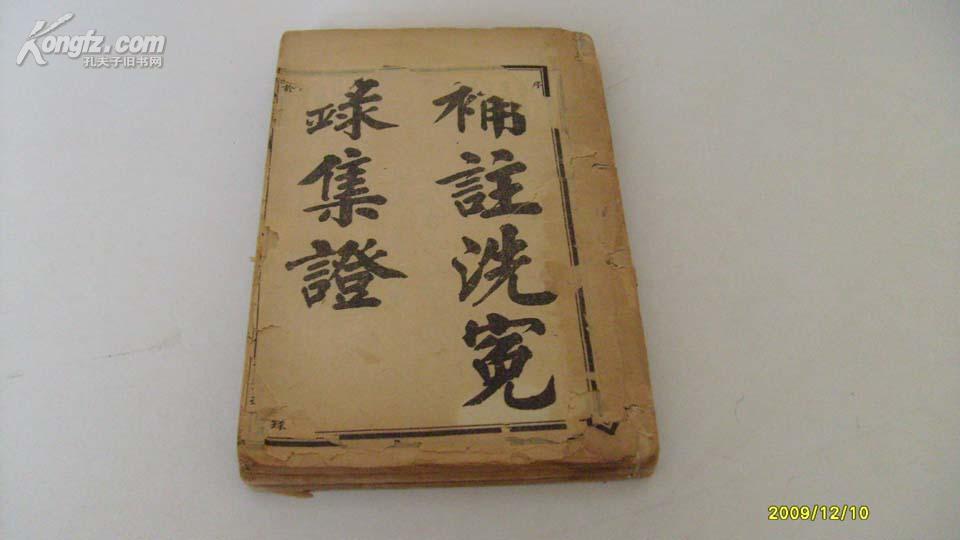 補註洗寃
錄集證
Kongfz.com
孔夫子旧书网
2009/12/10